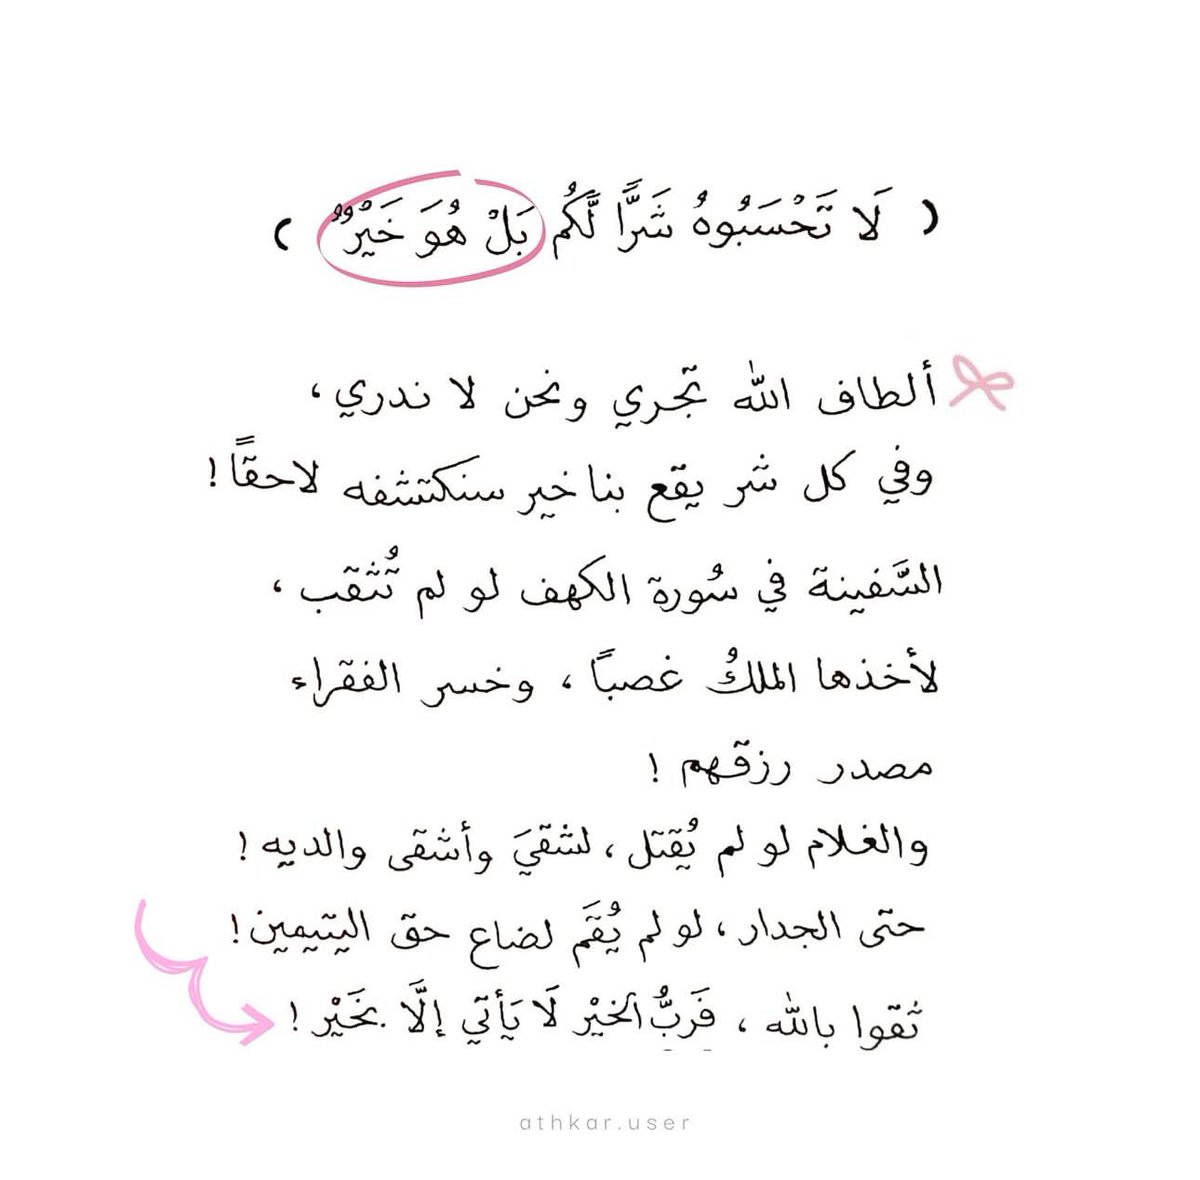 ( لَا تَحْسَبُوهُ شَرًّا لَّكُم بَلْ هُوَ خَيْرٌ )
ألطاف الله تجري ونحن لا ندري ،
وفي كل شر يقع بنا خير سنكتشفه لاحقاً !
السَّفينة في سُورة الكهف لو لم تُثقب ،
لأخذها الملكُ غصباً ، وخسر الفقراء
مصدر رزقهم !
والغلام لو لم يُقتل ، لشقيَ وأشقى والديه !
حتى الجدار ، لو لم يُقَم لضاع حق اليتيمين !
ثقوا بالله ، فَرَبُّ الخيْر لَا يَأتي إلَّا بخَيْر !
athkar.user